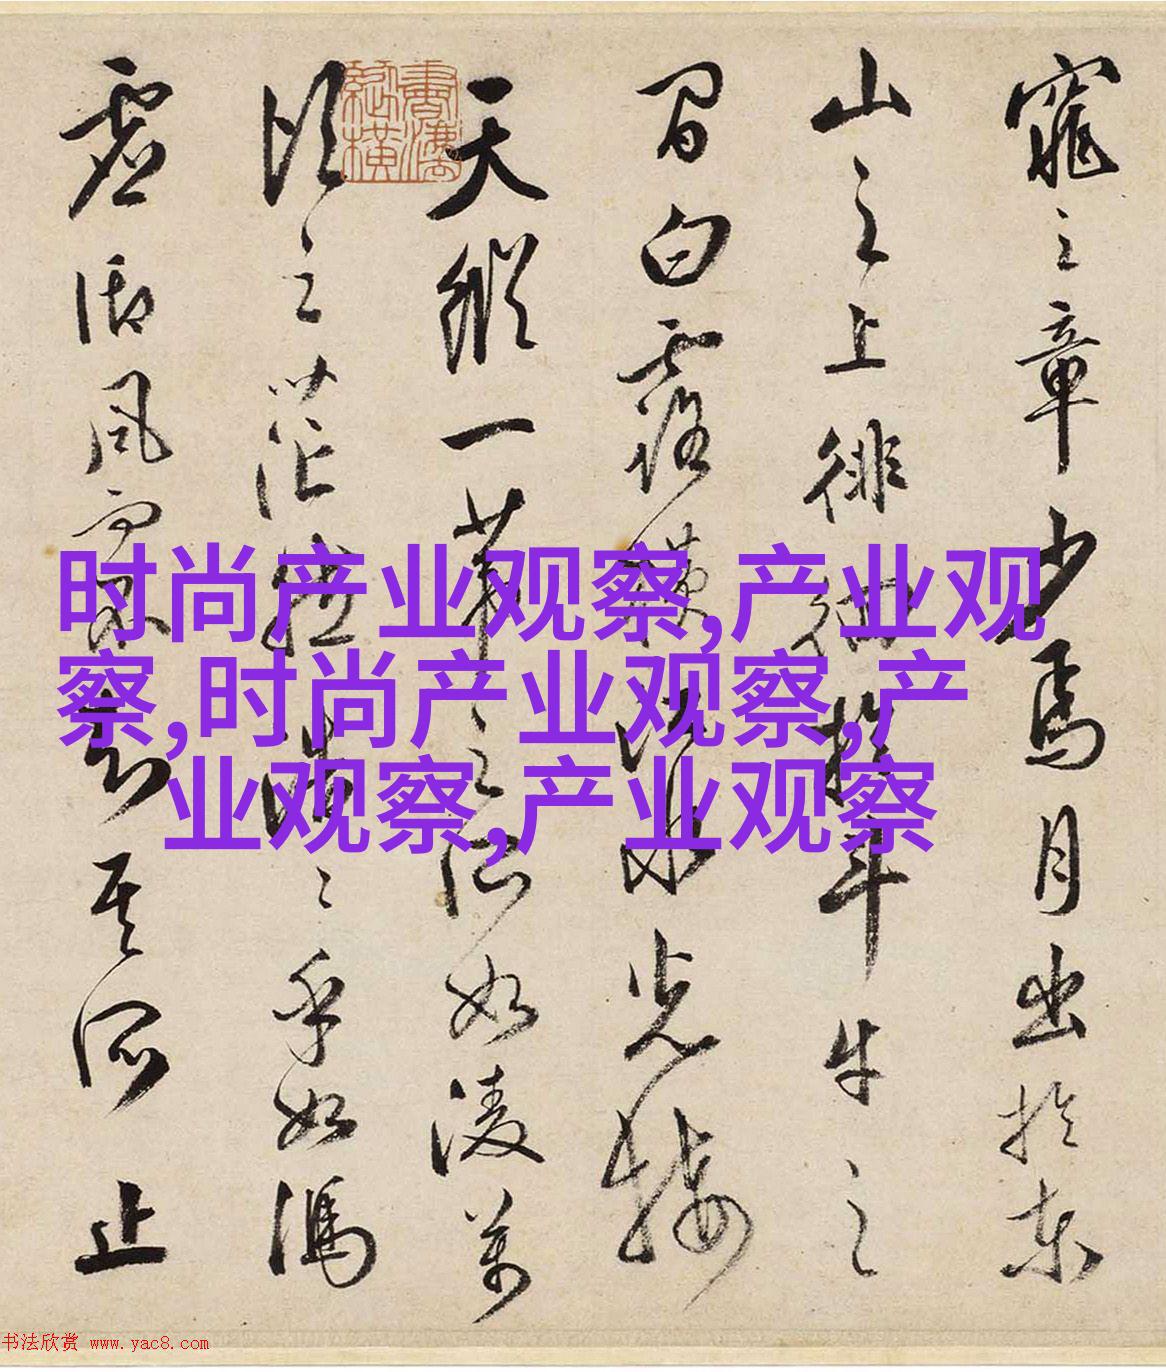 窕之章少焉月出於東
山之上徘徊於斗牛之
間白露橫江水光接
天縱一葦之所如凌萬
頃之茫然浩〻乎如馮
虛御風而不知其所止
時尚产业观察,产业观
察,时尚产业观察,产
业观察,产业观察
书法欣赏 www.yac8.com